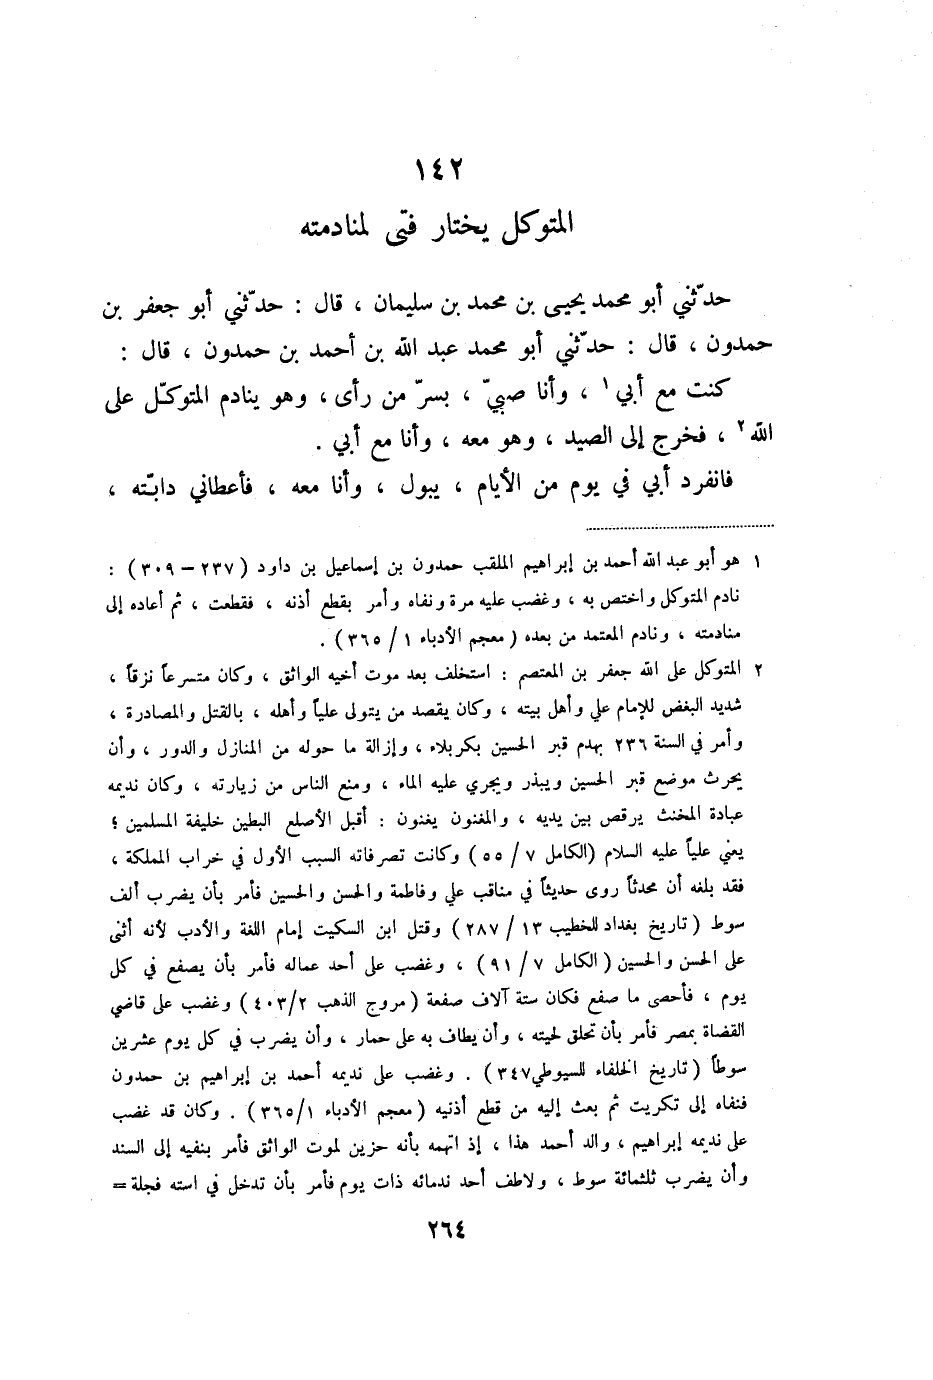 ١٤٢
المتوكل يختار فتى لمنادمته
حدّثني أبو محمد يحيى بن محمد بن سليمان ، قال : حدّثني أبو جعفر بن
حمدون ، قال : حدّثني أبو محمد عبد الله بن أحمد بن حمدون ، قال :
كنت مع أبي ١ ، وأنا صبيّ ، بسرّ من رأى ، وهو ينادم المتوكّل على
الله ٢ ، فخرج إلى الصيد ، وهو معه ، وأنا مع أبي .
فانفرد أبي في يوم من الأيام ، يبول ، وأنا معه ، فأعطاني دابّته ،
١ هو أبو عبد الله أحمد بن إبراهيم الملقب حمدون بن إسماعيل بن داود ( ٢٣٧ – ٣٠٩ ) :
نادم المتوكل واختص به ، وغضب عليه مرة ونفاه وأمر بقطع أذنه ، فقطعت ، ثم أعاده إلى
منادمته ، ونادم المعتمد من بعده ( معجم الأدباء ١ / ٣٦٥ ) .
٢ المتوكل على الله جعفر بن المعتصم : استخلف بعد موت أخيه الواثق ، وكان متسرعاً نزقاً ،
شديد البغض للإمام علي وأهل بيته ، وكان يقصد من يتولى علياً وأهله ، بالقتل والمصادرة ،
وأمر في السنة ٢٣٦ بهدم قبر الحسين بكربلاء ، وإزالة ما حوله من المنازل والدور ، وأن
يحرث موضع قبر الحسين ويبذر ويجري عليه الماء ، ومنع الناس من زيارته ، وكان نديمه
عبادة المخنث يرقص بين يديه ، والمغنون يغنون : أقبل الأصلع البطين خليفة المسلمين ؛
يعني علياً عليه السلام (الكامل ٧ / ٥٥ ) وكانت تصرفاته السبب الأول في خراب المملكة ،
فقد بلغه أن محدثاً روى حديثاً في مناقب علي وفاطمة والحسن والحسين فأمر بأن يضرب ألف
سوط ( تاريخ بغداد للخطيب ١٣ / ٢٨٧ ) وقتل ابن السكيت إمام اللغة والأدب لأنه أثنى
على الحسن والحسين ( الكامل ٧ / ٩١ ) ، وغضب على أحد عماله فأمر بأن يصفع في كل
يوم ، فأحصى ما صفع فكان ستة آلاف صفعة ( مروج الذهب ٢/ ٤٠٣ ) وغضب على قاضي
القضاة بمصر فأمر بأن تحلق لحيته ، وأن يطاف به على حمار ، وأن يضرب في كل يوم عشرين
سوطاً ( تاريخ الخلفاء للسيوطي ٣٤٧ ) . وغضب على نديمه أحمد بن إبراهيم بن حمدون
فنفاه إلى تكريت ثم بعث إليه من قطع أذنيه ( معجم الأدباء ١/ ٣٦٥ ) . وكان قد غضب
على نديمه إبراهيم ، والد أحمد هذا ، إذ اتهمه بأنه حزين لموت الواثق فأمر بنفيه إلى السند
وأن يضرب ثلثمائة سوط ، ولاطف أحد ندمائه ذات يوم فأمر بأن تدخل في استه فجلة =
٢٦٤